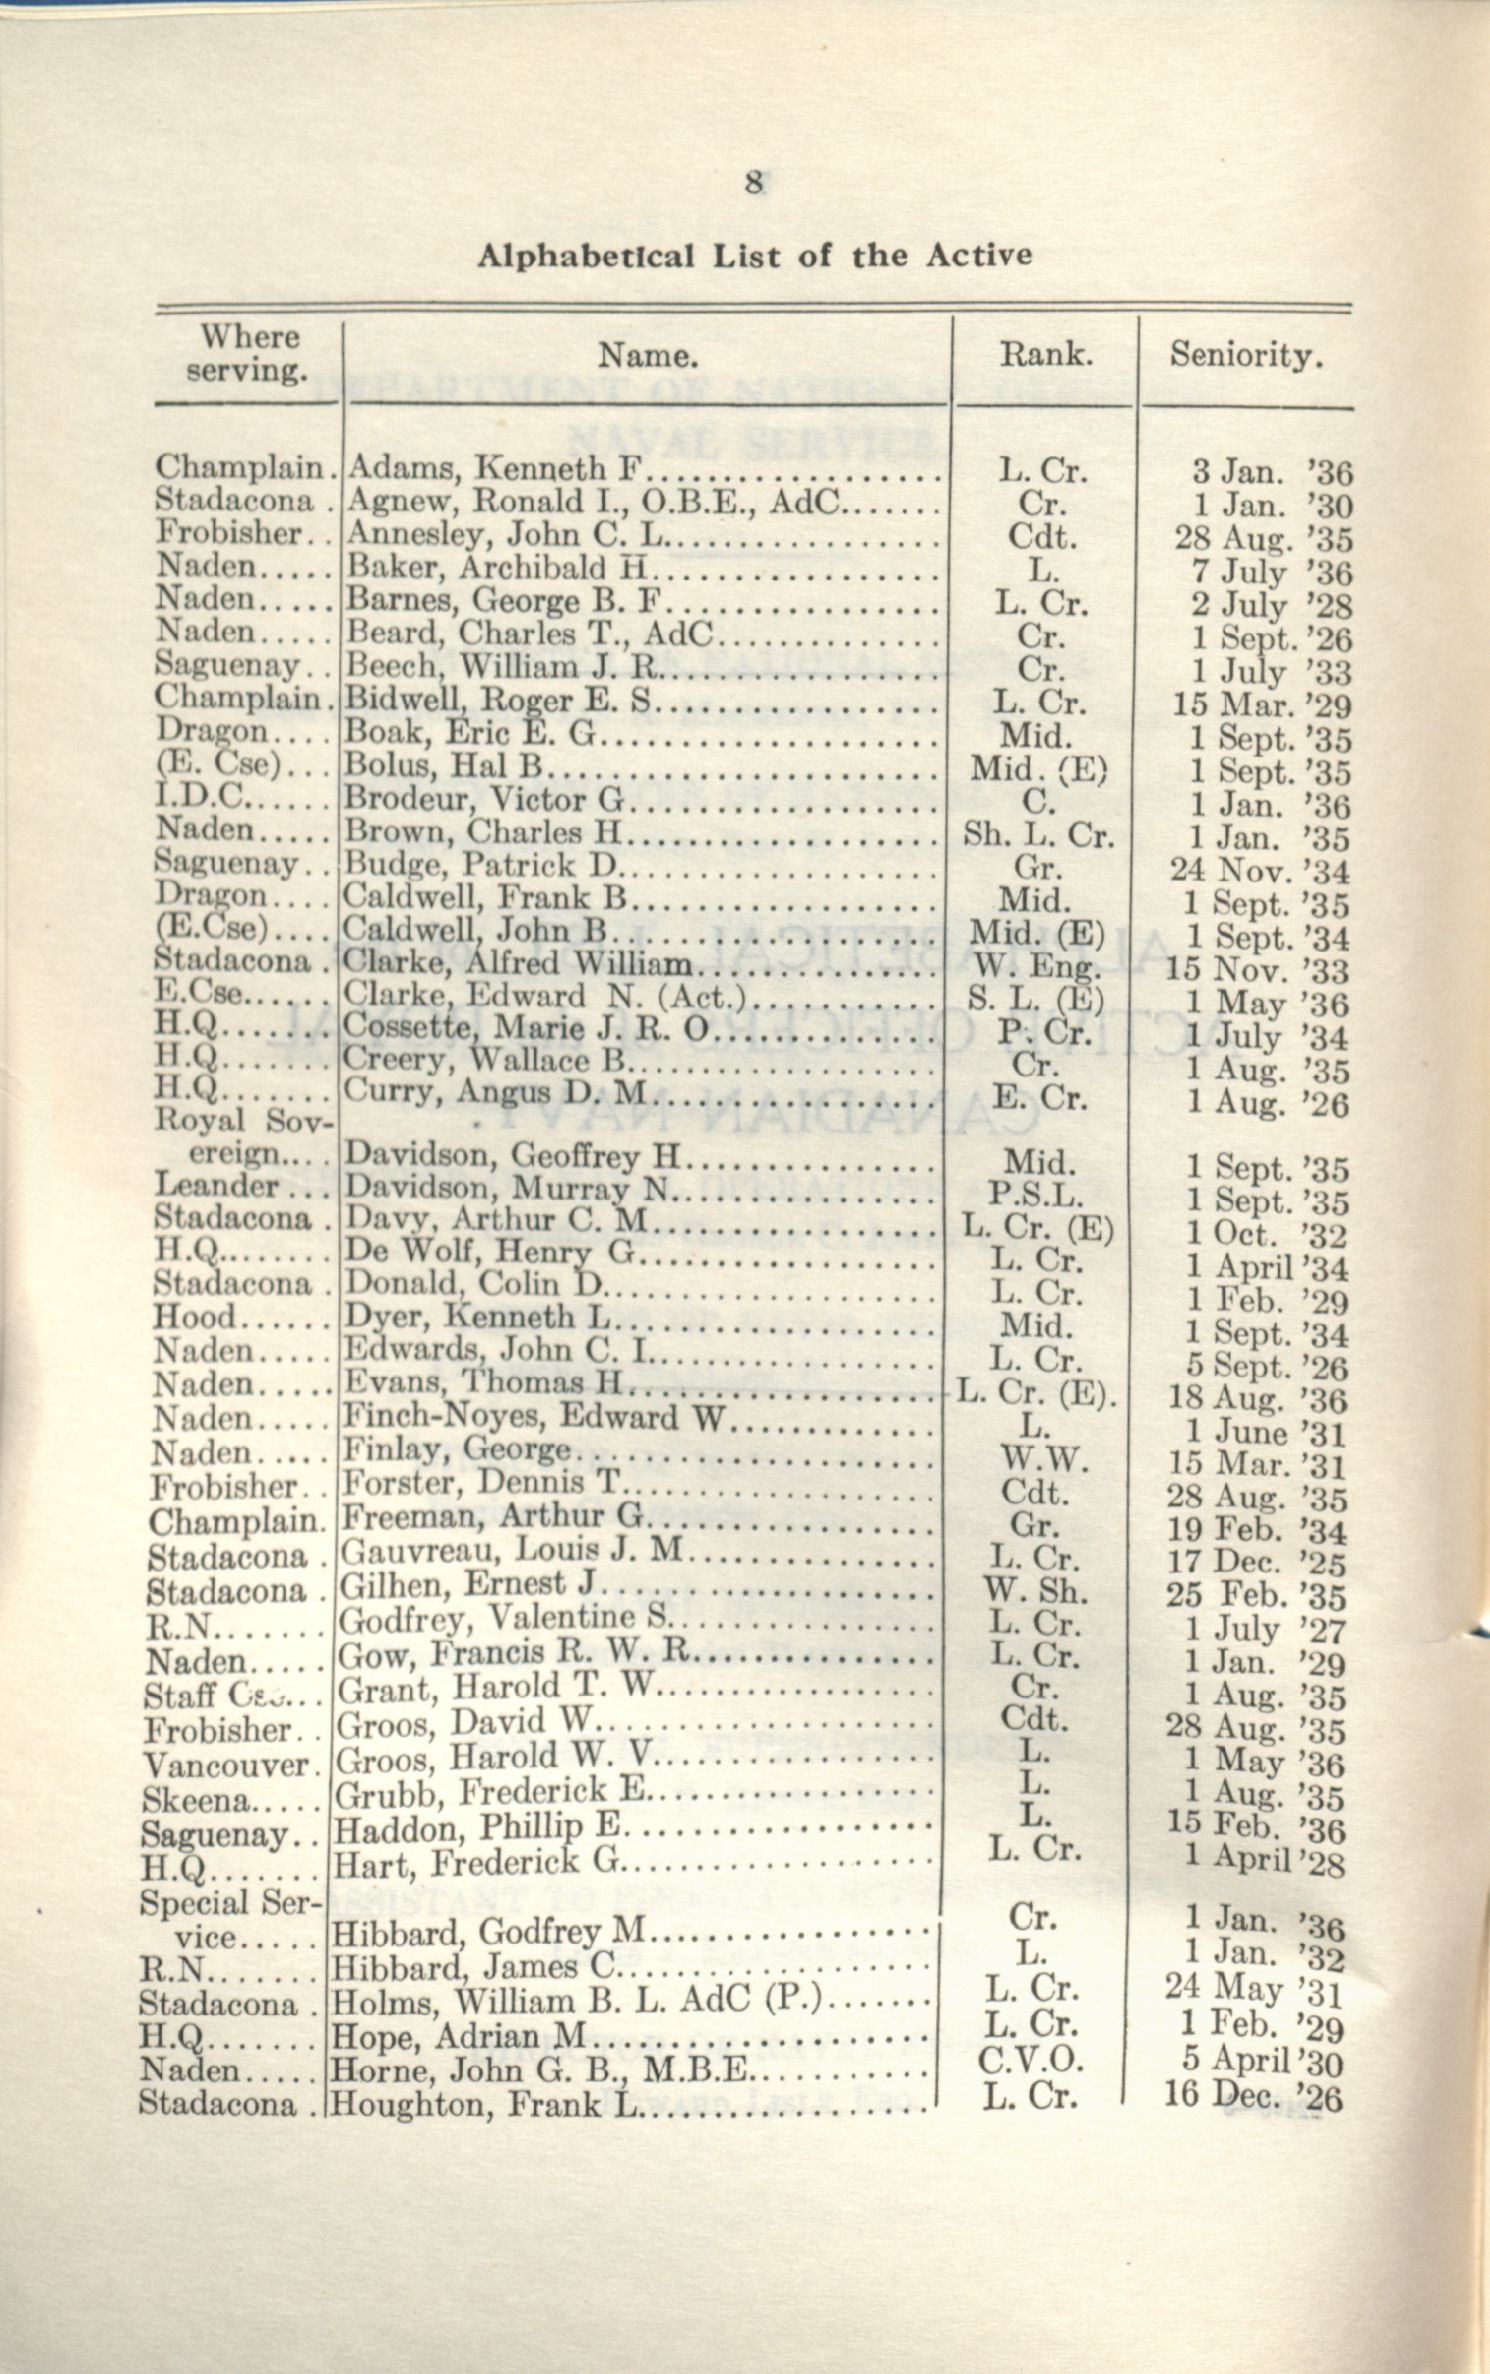 8
Alphabetical List of the Active
Where serving. Name. Rank. Seniority.
Champlain. Adams, Kenneth F. L. Cr. 3 Jan. '36
Stadacona. Agnew, Ronald I., O.B.E., AdC. Cr. 1 Jan. '30
Frobisher.. Annesley, John C. L. Cdt. 28 Aug. '35
Naden..... Baker, Archibald H. L. 7 July '36
Naden..... Barnes, George B. F. L. Cr. 2 July '28
Naden..... Beard, Charles T., AdC. Cr. 1 Sept. '26
Saguenay.. Beech, William J. R. Cr. 1 July '33
Champlain. Bidwell, Roger E. S. L. Cr. 15 Mar. '29
Dragon.... Boak, Eric E. G. Mid. 1 Sept. '35
(E. Cse)... Bolus, Hal B. Mid. (E) 1 Sept. '35
I.D.C...... Brodeur, Victor G. C. 1 Jan. '36
Naden..... Brown, Charles H. Sh. L. Cr. 1 Jan. '35
Saguenay.. Budge, Patrick D. Gr. 24 Nov. '34
Dragon.... Caldwell, Frank B. Mid. 1 Sept. '35
(E.Cse).... Caldwell, John B. Mid. (E) 1 Sept. '34
Stadacona. Clarke, Alfred William. W. Eng. 15 Nov. '33
E.Cse...... Clarke, Edward N. (Act.) S. L. (E) 1 May '36
H.Q....... Cossette, Marie J. R. O. P. Cr. 1 July '34
H.Q....... Creery, Wallace B. Cr. 1 Aug. '35
H.Q....... Curry, Angus D. M. E. Cr. 1 Aug. '26
Royal Sov-
ereign.... Davidson, Geoffrey H. Mid. 1 Sept. '35
Leander... Davidson, Murray N. P.S.L. 1 Sept. '35
Stadacona. Davy, Arthur C. M. L. Cr. (E) 1 Oct. '32
H.Q........ De Wolf, Henry G. L. Cr. 1 April '34
Stadacona. Donald, Colin D. L. Cr. 1 Feb. '29
Hood...... Dyer, Kenneth L. Mid. 1 Sept. '34
Naden..... Edwards, John C. I. L. Cr. 5 Sept. '26
Naden..... Evans, Thomas H. L. Cr. (E). 18 Aug. '36
Naden..... Finch-Noyes, Edward W. L. 1 June '31
Naden..... Finlay, George. W.W. 15 Mar. '31
Frobisher.. Forster, Dennis T. Cdt. 28 Aug. '35
Champlain. Freeman, Arthur G. Gr. 19 Feb. '34
Stadacona. Gauvreau, Louis J. M. L. Cr. 17 Dec. '25
Stadacona. Gilhen, Ernest J. W. Sh. 25 Feb. '35
R.N....... Godfrey, Valentine S. L. Cr. 1 July '27
Naden..... Gow, Francis R. W. R. L. Cr. 1 Jan. '29
Staff Cse... Grant, Harold T. W. Cr. 1 Aug. '35
Frobisher.. Groos, David W. Cdt. 28 Aug. '35
Vancouver. Groos, Harold W. V. L. 1 May '36
Skeena..... Grubb, Frederick E. L. 1 Aug. '35
Saguenay.. Haddon, Phillip E. L. 15 Feb. '36
H.Q....... Hart, Frederick G. L. Cr. 1 April '28
Special Ser-
vice..... Hibbard, Godfrey M. Cr. 1 Jan. '36
R.N....... Hibbard, James C. L. 1 Jan. '32
Stadacona. Holms, William B. L. AdC (P.) L. Cr. 24 May '31
H.Q....... Hope, Adrian M. L. Cr. 1 Feb. '29
Naden..... Horne, John G. B., M.B.E. C.V.O. 5 April '30
Stadacona. Houghton, Frank L. L. Cr. 16 Dec. '26